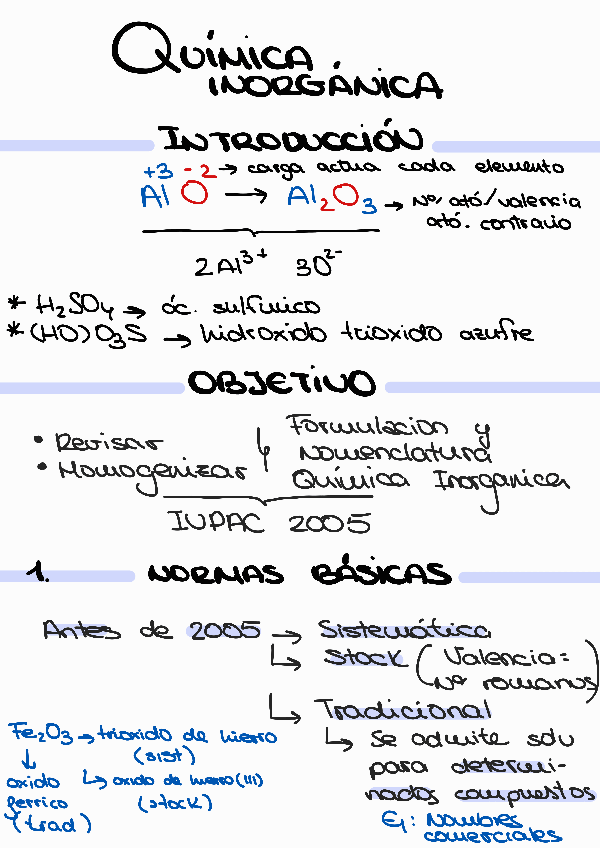 QUÍMICA
INORGÁNICA
INTRODUCCIÓN
+3 -2 → carga actua cada elemento
Al O → Al₂O₃ → Nº ató/valencia
ató. contrario
2Al³⁺ 3O²⁻
* H₂SO₄ → ác. sulfúrico
* (HO)O₃S → hidroxido trioxido azufre
OBJETIVO
• Revisar
• Homogenizar
↳ Formulacion y
Nomenclatura
Química Inorganica
IUPAC 2005
1. NORMAS BÁSICAS
Antes de 2005 → Sistemática
↳ Stock (Valencia=
Nº romanos)
↳ Tradicional
↳ Se admite solo
para determi-
nados compuestos
Ej: Nombres
comerciales
Fe₂O₃ → trioxido de hierro
(sist)
↓
oxido ↳ oxido de hierro (III)
ferrico (stock)
(trad)